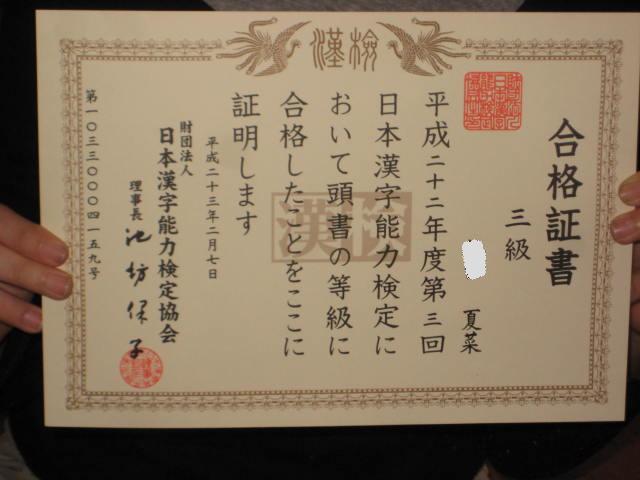 漢検
合格証書
三級
夏菜
平成二十二年度第三回
日本漢字能力検定に
おいて頭書の等級に
合格したことをここに
証明します
平成二十三年二月七日
財団法人
日本漢字能力検定協会
理事長 池坊保子
第一〇三三〇〇〇四一五九号
漢検